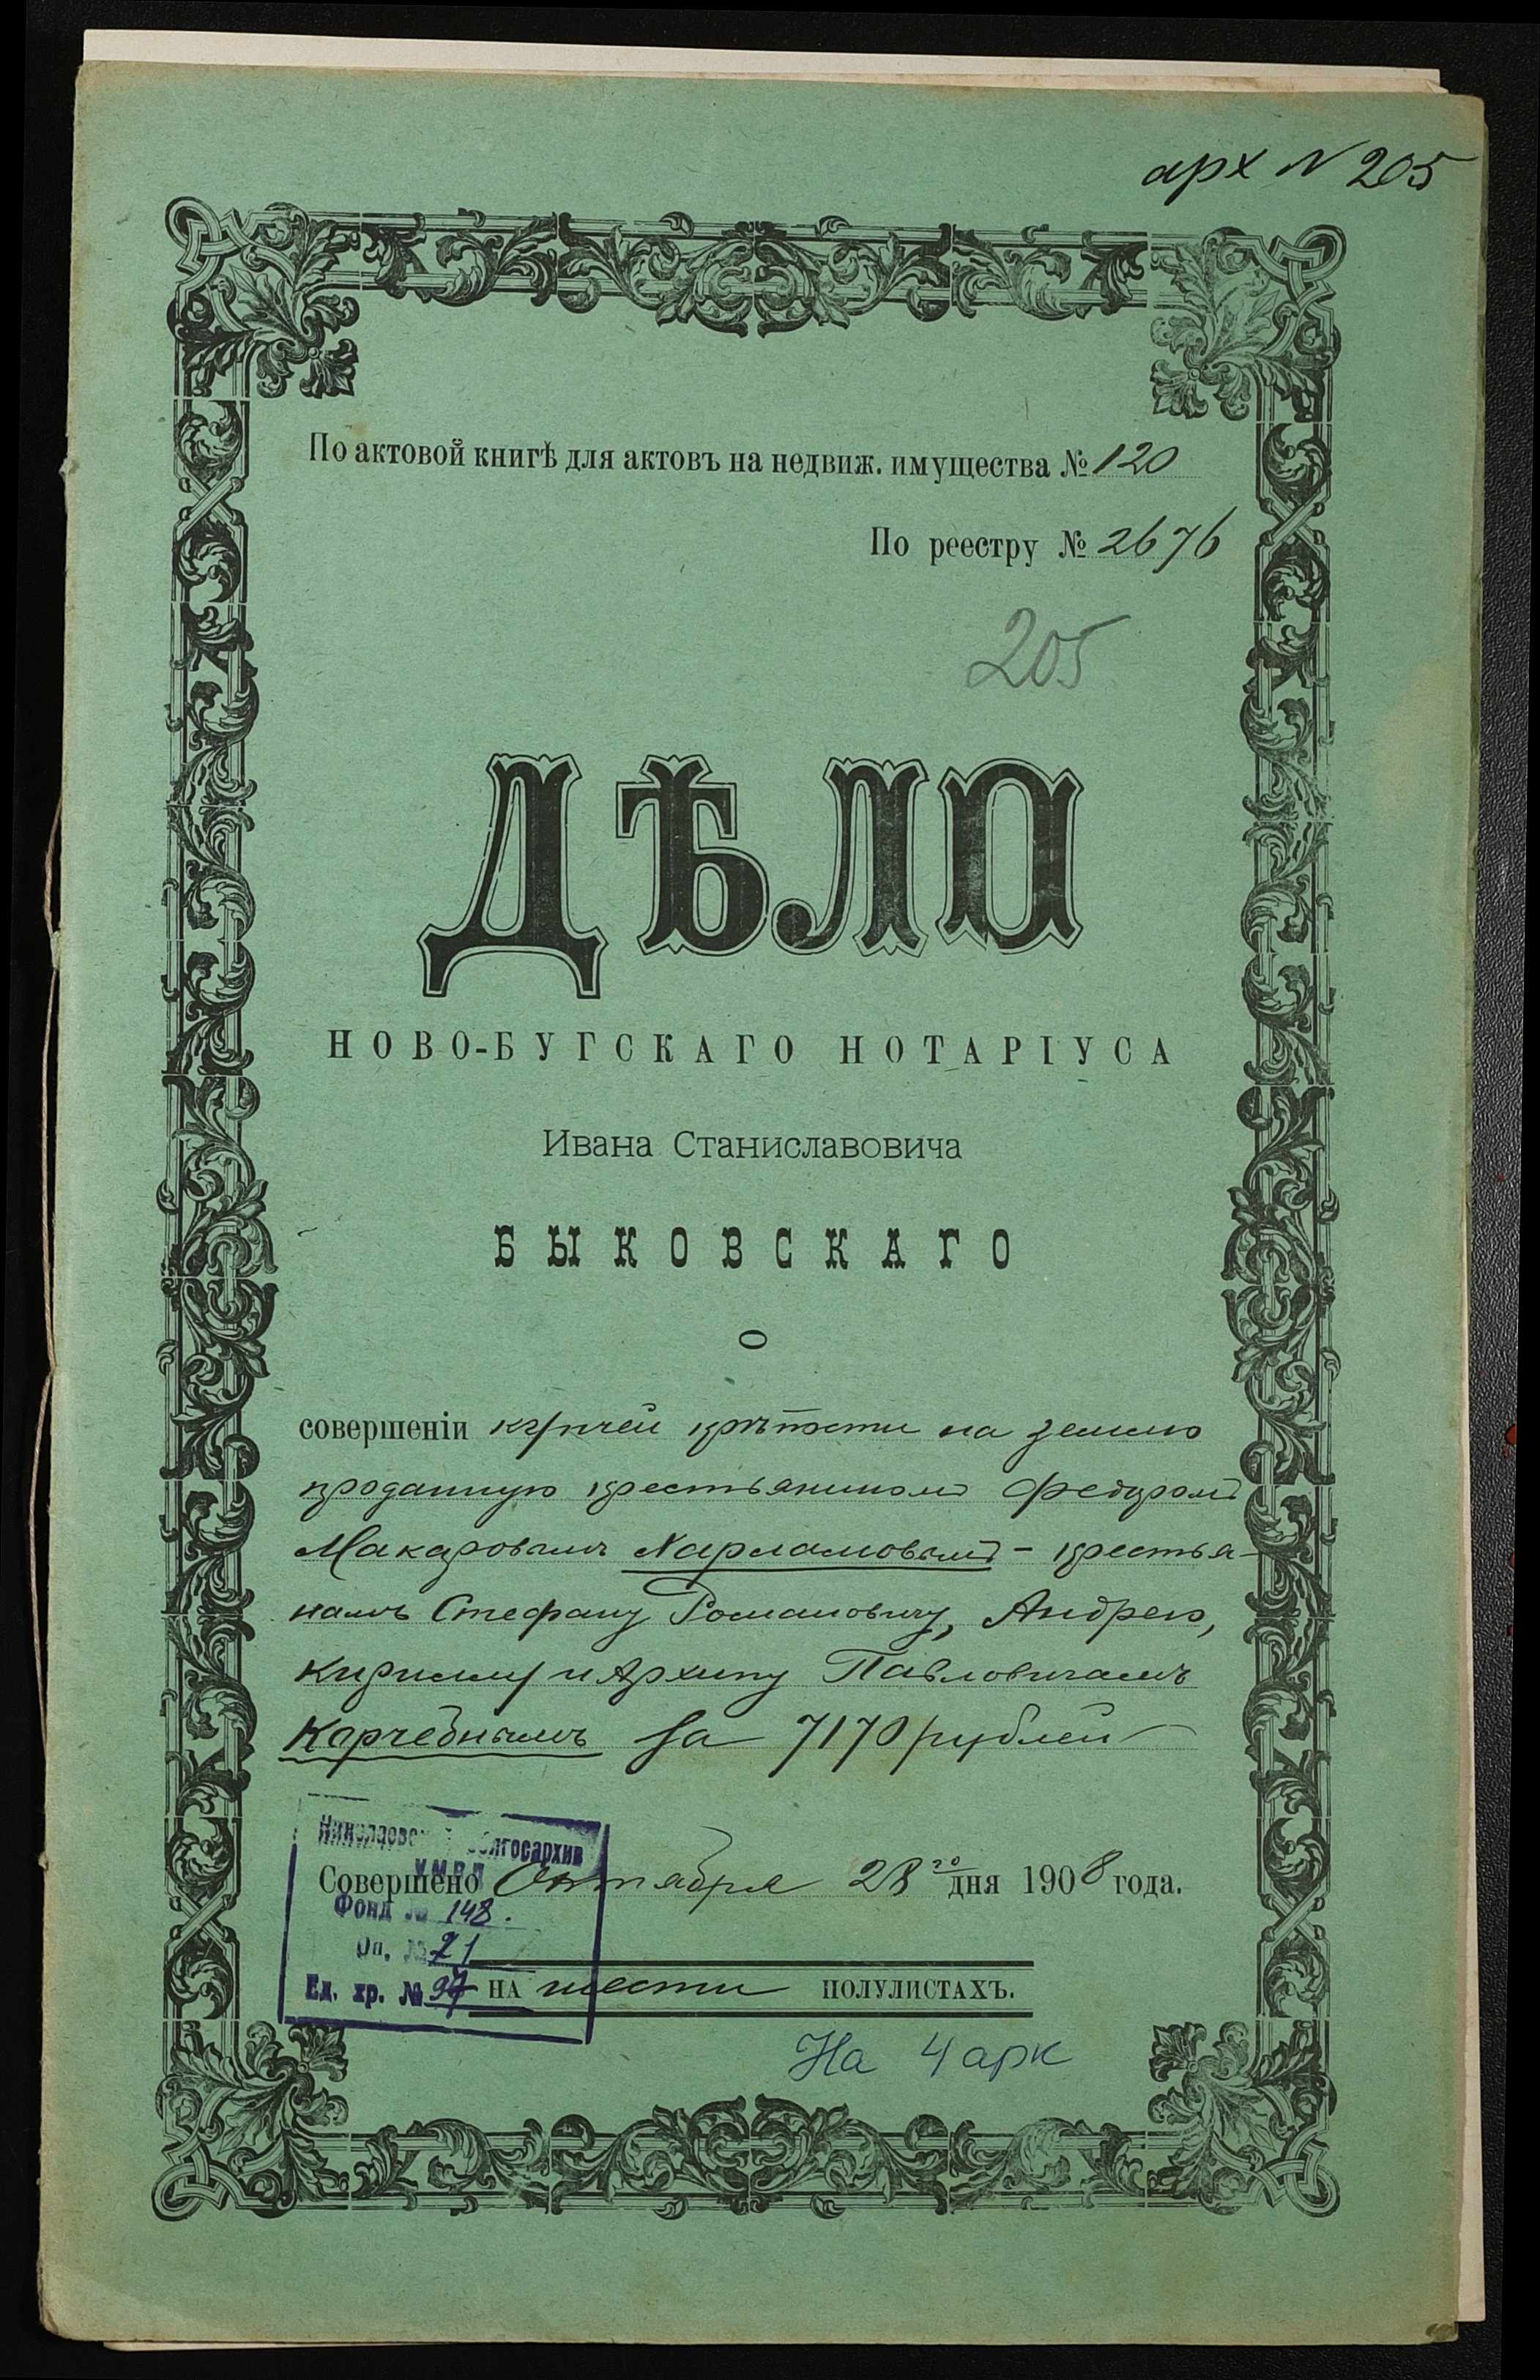 арх N 205
По актовой книгѣ для актовъ на недвиж. имущества № 120
По реестру № 2676
205
ДѢЛО
НОВО-БУГСКАГО НОТАРІУСА
Ивана Станиславовича
БЫКОВСКАГО
О
совершеніи купчей крѣпости на землю
проданную крестьяниномъ Федоромъ
Макаровымъ Харламовымъ - крестья-
намъ Стефану Романовичу, Андрею,
Кириллу и Архипу Павловичамъ
Корчебнымъ за 7170 рублей
облгосархив
УМВД
Совершено Октября 28го дня 1908 года.
Фонд № 148.
Оп. № 21
Ед. хр. № 97
НА шести ПОЛУЛИСТАХЪ.
На 4 арк